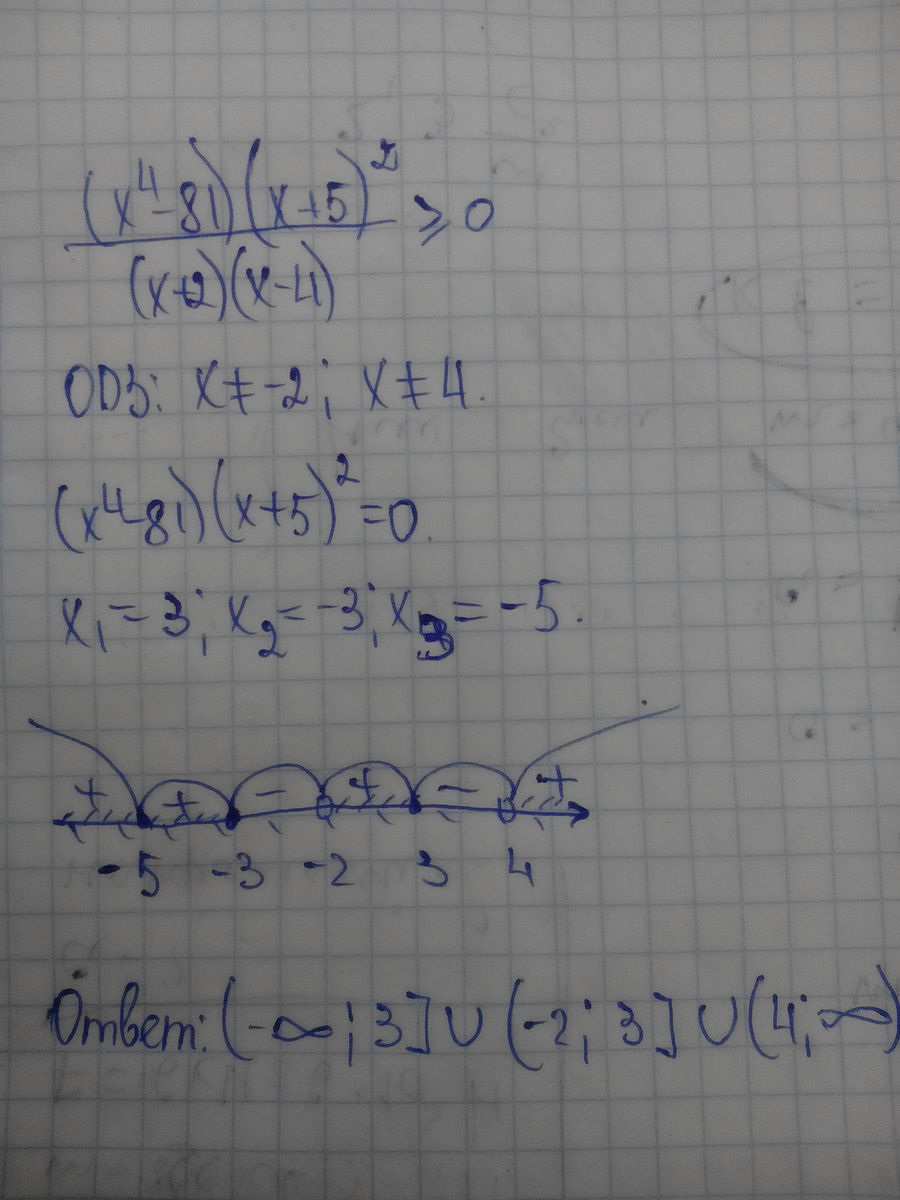 (x⁴-81)(x+5)²
(x+2)(x-4) ⩾ 0
ОДЗ: x≠-2; x≠4.
(x⁴-81)(x+5)²=0.
x₁=3; x₂=-3; x₃=-5.
+ + - + - +
-5 -3 -2 3 4
Ответ: (-∞; 3]∪(-2; 3]∪(4; ∞)